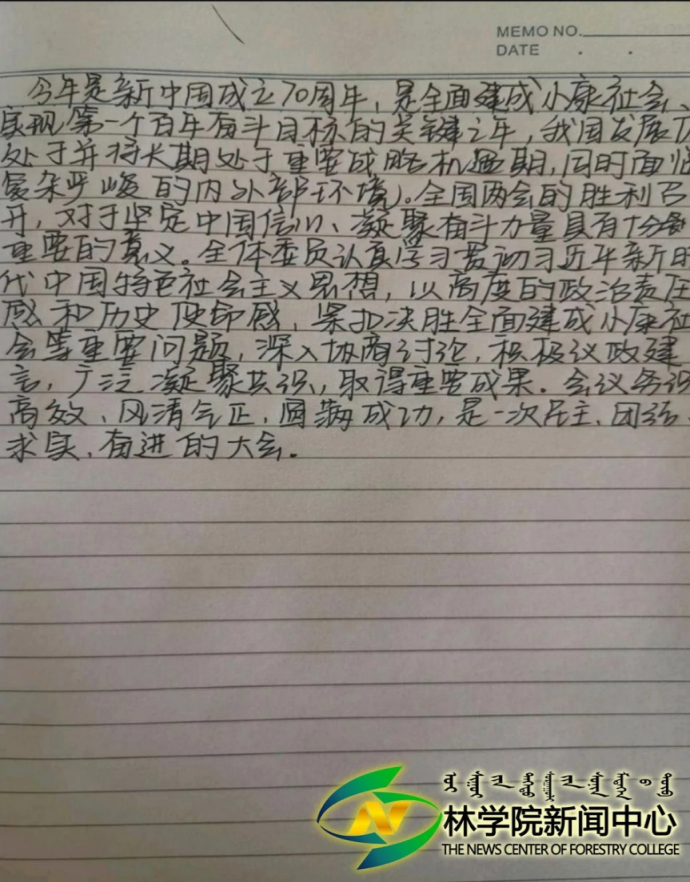 MEMO NO.
DATE . .
今年是新中国成立70周年，是全面建成小康社会、
实现第一个百年奋斗目标的关键之年，我国发展仍
处于并将长期处于重要战略机遇期，同时面临
复杂严峻的内外部环境。全国两会的胜利召
开，对于坚定中国信心、凝聚奋斗力量具有十分
重要的意义。全体委员认真学习贯彻习近平新时
代中国特色社会主义思想，以高度的政治责任
感和历史使命感，紧扣决胜全面建成小康社
会等重要问题，深入协商讨论，积极议政建
言，广泛凝聚共识，取得重要成果。会议务实
高效、风清气正，圆满成功，是一次民主、团结、
求实、奋进的大会。
林学院新闻中心
THE NEWS CENTER OF FORESTRY COLLEGE